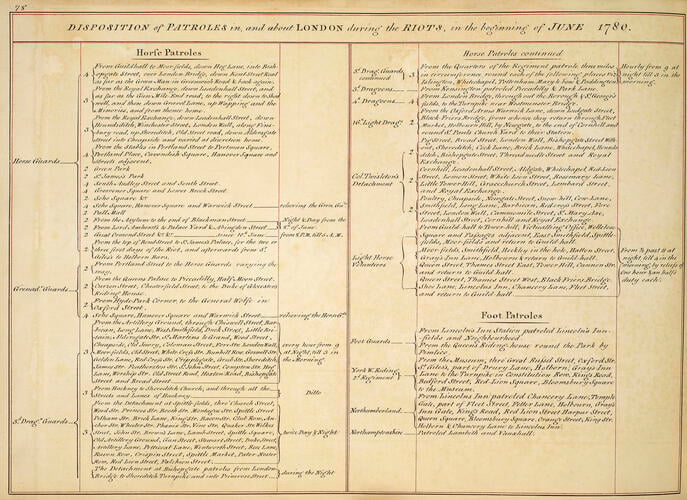 78
DISPOSITION of PATROLES in, and about LONDON during the RIOTS, in the beginning of JUNE 1780.
Horse Patroles
Horse Guards
4 From Guildhall to Moorfields, down Hog Lane, into Bish-
opsgate Street, over London Bridge, down Kent Street Road
as far as the Green Man in Greenwich Road & back again.
3 From the Royal Exchange, down Leadenhall Street, and
as far as the Gun, Mile End road, to the right down to Shad
well, and then down Gravel Lane, up Wapping and the
Minories, and from thence home.
3 From the Royal Exchange, down Leadenhall Street, down
Houndsditch, Winchester Street, London Wall, along Fins-
bury road, up Shoreditch, Old Street road, down Aldersgate
Street into Cheapside and varied at discretion home.
4 From the Stables in Portland Street to Portman Square,
Portland Place, Cavendish Square, Hanover Square and
Streets adjacent.
2 Green Park
2 St. James's Park
4 South Audley Street and South Street.
4 Grosvenor Square and lower Brook Street.
2 Soho Square &c
4 Soho Square, Hanover Square and Warwick Street relieving the Gren. Gds.
2 Pall Mall
2 From the Asylum to the end of Blackman Street
2 From Lord Amhersts to Palace Yard & Abingdon Street
Night & Day from the
8th. of June.
2 Great Ormond Street &c &c Since 12th. June from 8 P.M. till 5 A.M.
Grenad. Guards
2 From the top of Bond Street to St. James's Palace, for the two or
three first days of the Riot, and afterwards from St.
Giles's to Holborn Bars.
2 From Portland Street to the Horse Guards varying the
way.
2 From the Queens Palace to Piccadilly, Half Moon Street,
Curzon Street, Chesterfield Street, to the Duke of Gloucesters
Riding House.
2 From Hyde Park Corner, to the General Wolfe in
Oxford Street.
4 Soho Square, Hanover Square and Warwick Street relieving the Horse Gds.
3d. Drag. Guards
3 From the Artillery Ground, through Chiswell Street, Bar-
bican, Long Lane, West Smithfield, Duck Street, Little Bri-
tain, Aldersgate Str. St. Martins le Grand, Wood Street,
Cheapside, Old Jewry, Coleman Street, Fore Str. London Wall,
Moorfields, Old Street, White Cross Str. Bunhill Row, Grewell Str.
Golden Lane, Red Cross Str. Cripplegate, Grub Str. Shoreditch,
James Str. Featherston Str. St. John Street, Compton Str. Hog
Lane, Worship Str. Old Street Road, Hoxton Mind, Bishopsgate
Street and Broad Street.
every hour from 9
at Night, till 3 in
the Morning.
3 From Hackney to Shoreditch Church, and through all the
Streets and Lanes of Hackney.
Ditto
3 From the Detachment at Spittle fields, thro' Church Street,
Wood Str. Princess Str. Brook Str. Montague Str. Spittle Street
Pelham Str. Brick Lane, King Str. Bacon Str. Club Row, An-
chor Str. Wheeler Str. Phœnix Str. Vine Str. Quaker Str. Wilkes
Street, John Str. Brown's Lane, Lamb Street, Spittle Square,
Old Artillery Ground, Gun Street, Stewart Street, Duke Street,
Artillery Lane, Petticoat Lane, Wentworth Street, Rose Lane,
Raven Row, Crispin Street, Spittle Market, Pater Noster
Row, Red Lion Street, Fulchion Street.
twice Day & Night
The Detachment at Bishopsgate patroles from London
Bridge to Shoreditch Turnpike and into Princess Street.
during the Night
Horse Patroles continued
3d. Drag. Guards
continued
3 From the Quarters of the Regiment patrole three miles
in circumference, round each of the following places (viz.)
Islington, Whitechapel, Tottenham, Mary le bone, & Paddington
Hourly from 9 at
night till 3 in the
morning.
3d. Dragoons 2 From Kensington patroled Piccadilly & Park Lane.
4th. Dragoons 4 From London Bridge, through the Borough & St. George's
fields, to the Turnpike near Westminster Bridge.
16th. Light Drag.
4 From the Oxford Arms Warwick Lane, down Ludgate Street,
Black Friers Bridge, from whence they return through Fleet
Market, Holborn Hill, by Newgate, to the end of Cornhill and
round St. Pauls Church Yard to their Station.
Col. Twisleton's
Detachment
2 Pig Street, Broad Street, London Wall, Bishopsgate Street With-
out, Shoreditch, Cock Lane, Brick Lane, Whitechapel, Hounds-
ditch, Bishopsgate Street, Threadneedle Street and Royal
Exchange.
2 Cornhill, Leadenhall Street, Aldgate, Whitechapel, Red Lion
Street, Lemon Street, White Lion Street, Rosemary Lane,
Little Tower Hill, Gracechurch Street, Lombard Street,
and Royal Exchange.
2 Poultry, Cheapside, Newgate Street, Snow hill, Cow Lane,
Smithfield, Long Lane, Barbican, Red Cross Street, Fore
Street, London Wall, Cammomile Street, St. Mary Axe,
Leadenhall Street, Cornhill and Royal Exchange.
Light Horse
Volunteers
From Guild hall to Tower hill, Victualling Office, Wellclose
Square and Passages adjacent, East Smithfield, Spittle-
fields, Moor-fields and return to Guild hall.
Moor fields, Smithfield, Hockley in the hole, Hatton Street,
Grays Inn Lane, Holborn & return to Guild hall.
Queen Street, Thames Street East, Tower Hill, Cannon Str.
and return to Guild-hall.
Queen Street, Thames Street West, Black Friers Bridge,
Shoe Lane, Lincolns Inn, Chancery Lane, Fleet Street,
and return to Guild-hall.
From ½ past 8 at
night till 3 in the
morning, by reliefs of
one hour & an half
duty each.
Foot Patroles
Foot Guards
From Lincolns Inn Station patroled Lincolns Inn-
fields and Neighbourhood.
From the Queens Riding-house round the Park by
Pimlico
York W. Riding
2d. Regiment
From the Museum, thro' Great Russel Street, Oxford Str.
St. Giles's, part of Drury Lane, Holborn, Grays Inn
Lane to the Turnpike, Constitution Row, Kings Road,
Bedford Street, Red Lion Square, Bloomsbury Square
to the Museum.
Northumberland
From Lincolns Inn patroled Chancery Lane, Temple
Gate, part of Fleet Street, Fetter Lane, Holborn, Grays
Inn Gate, Kings Road, Red Lion Street Harpur Street,
Queen Square, Bloomsbury Square, Orange Street, King Str.
Holborn & Chancery Lane to Lincolns Inn.
Northamptonshire Patroled Lambeth and Vauxhall.